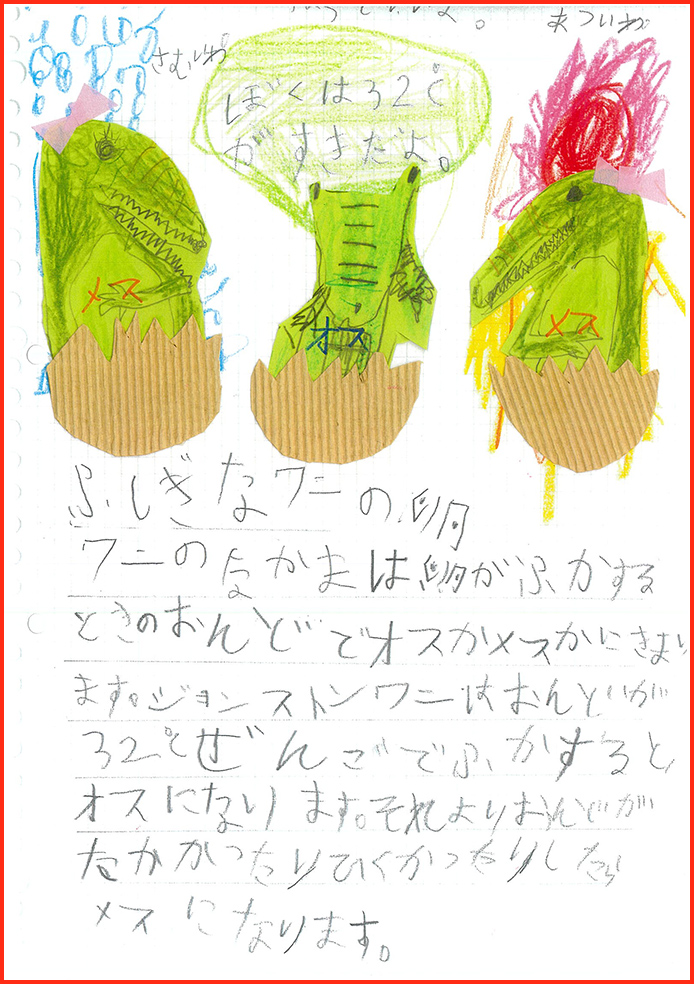 あついわ
さむいわ
ぼくは32℃
がすきだよ。
メス
オス
メス
ふしぎなワニの卵
ワニのなかまは卵がふかする
ときのおんどでオスかメスかにきまり
ます。ジョンストンワニはおんどが
32℃ぜんごでふかすると
オスになります。それよりおんどが
たかかったりひくかったりしたら
メスになります。